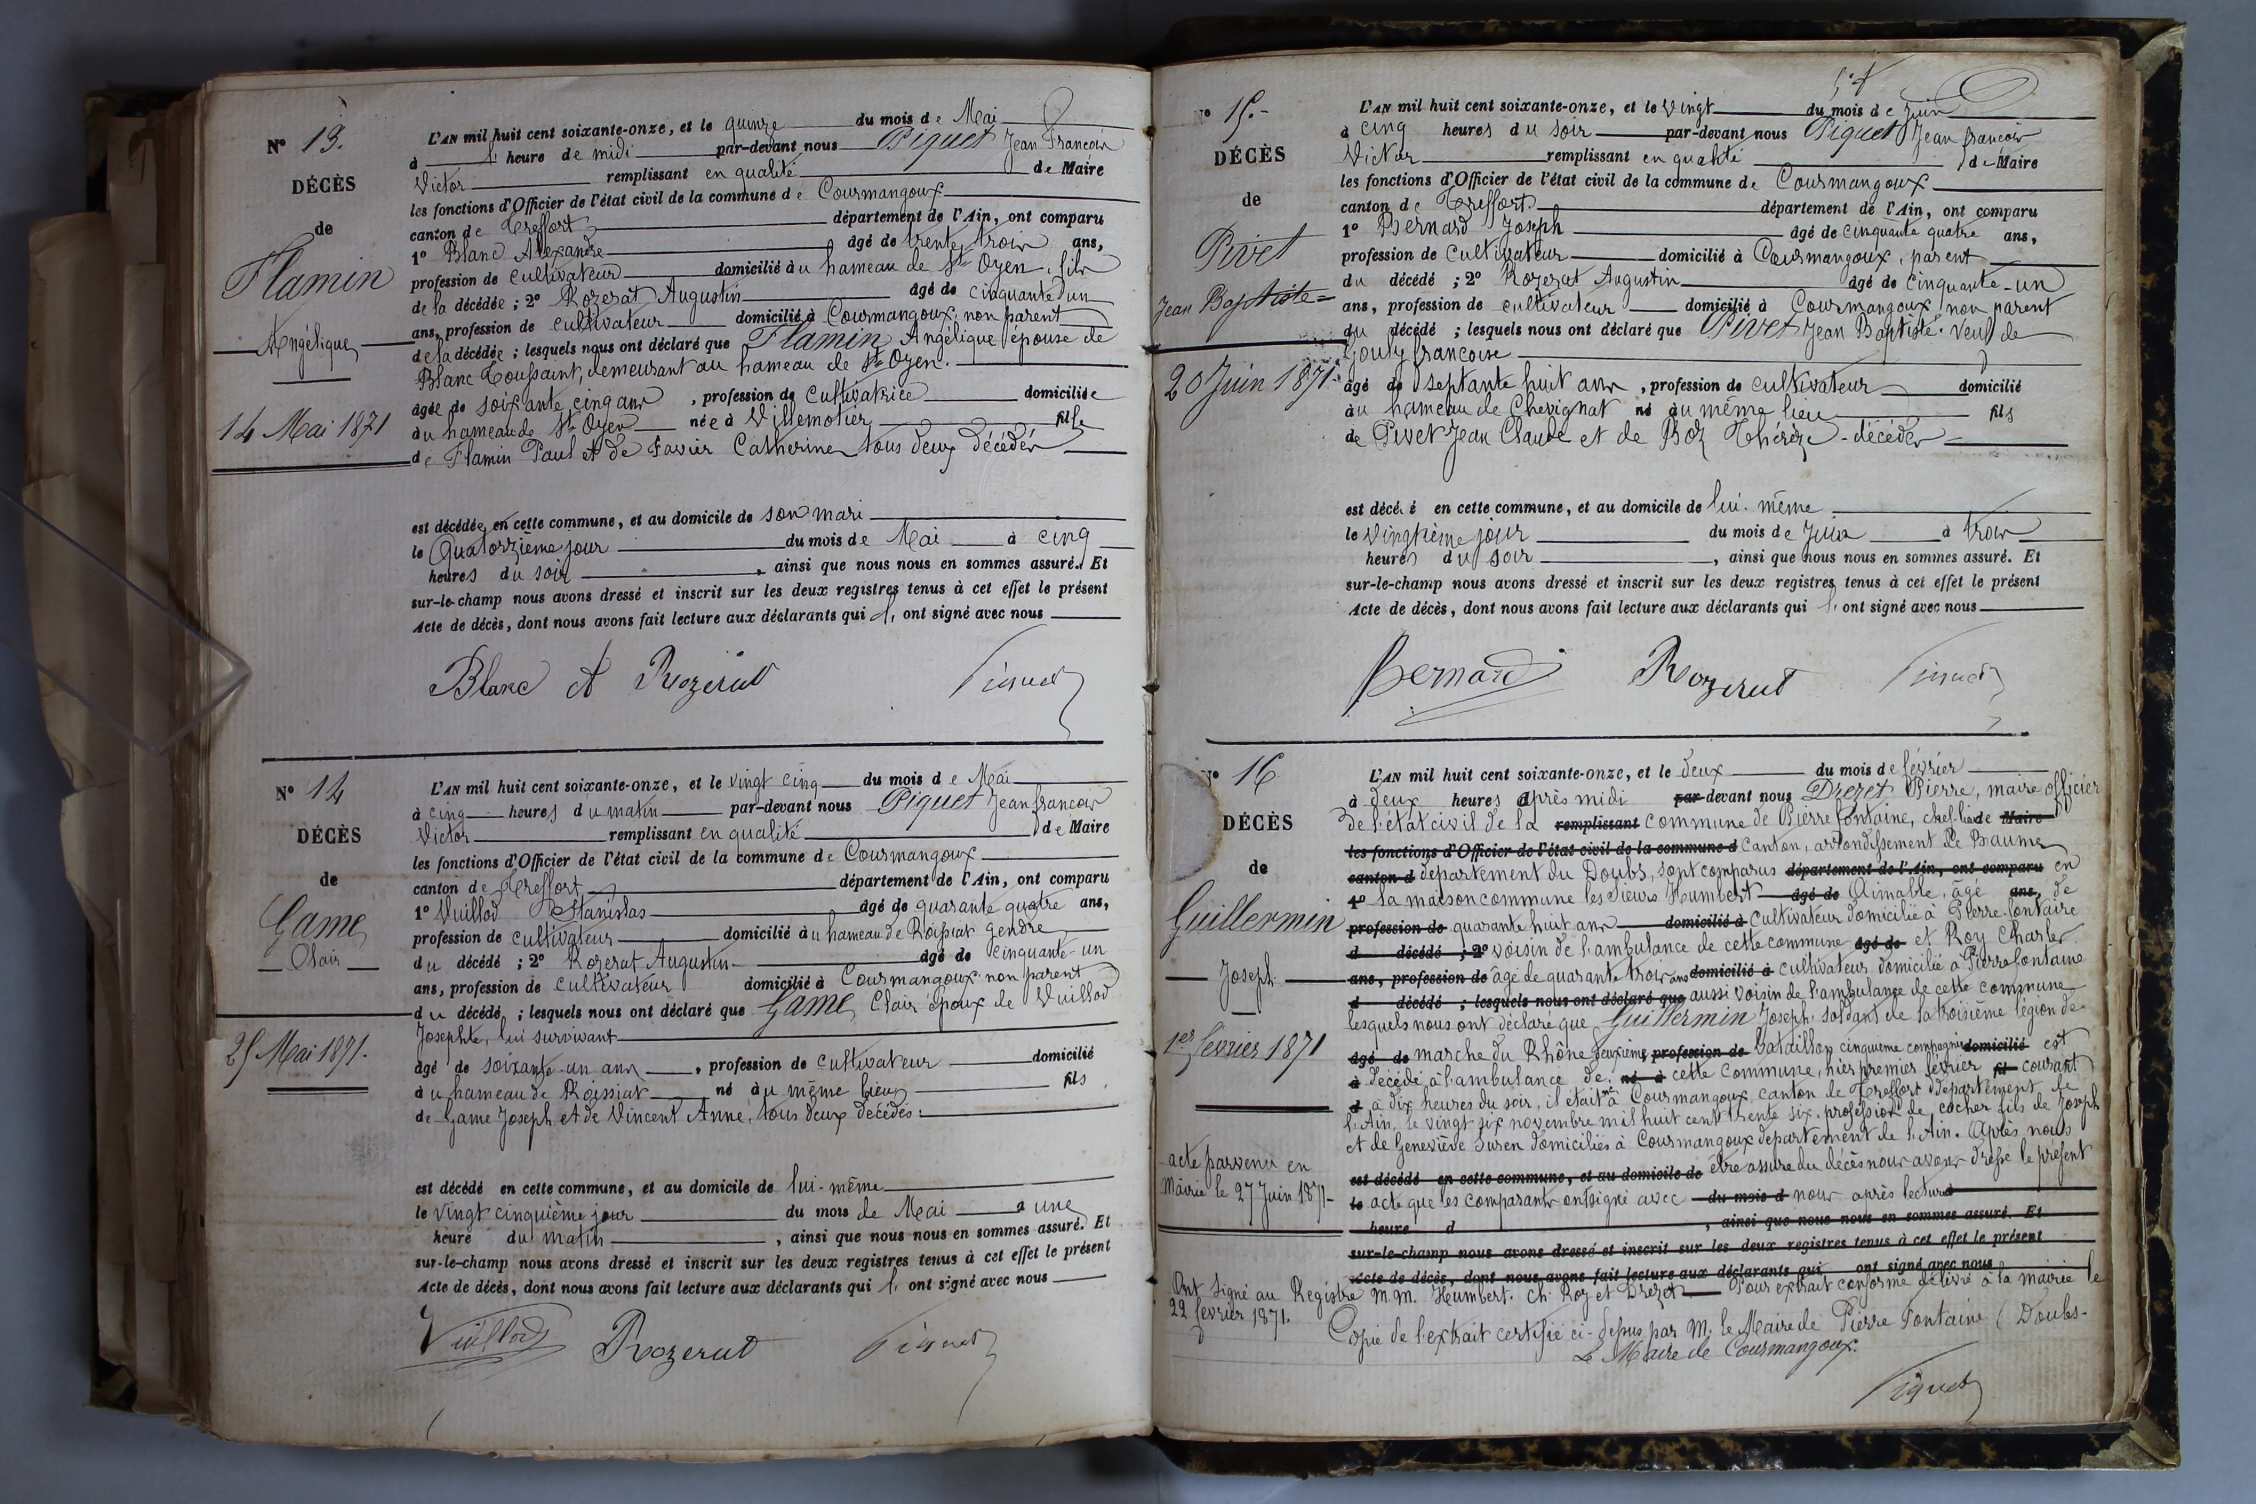 N° 13.
DÉCÈS
de
Flamin
Angélique
14 Mai 1871
L'AN mil huit cent soixante-onze, et le quinze du mois de Mai
à heure de midi par-devant nous Piquet Jean François
Victor remplissant en qualité de Maire
les fonctions d'Officier de l'état civil de la commune de Courmangoux
canton de Treffort département de l'Ain, ont comparu
1° Blanc Alexandre âgé de trente trois ans,
profession de cultivateur domicilié au hameau de St Oyen, fils
de la décédée ; 2° Rozerat Augustin âgé de cinquante d'un
ans, profession de cultivateur domicilié à Courmangoux, non parent
de la décédée ; lesquels nous ont déclaré que Flamin Angélique épouse de
Blanc Toussaint, demeurant au hameau de St Oyen.
âgée de soixante cinq ans, profession de cultivatrice domiciliée
au hameau de St Oyen née à Villemotier fille
de Flamin Paul et de Favier Catherine tous deux décédés
est décédée en cette commune, et au domicile de son mari
le Quatorzième jour du mois de Mai à cinq
heures du soir, ainsi que nous nous en sommes assuré. Et
sur-le-champ nous avons dressé et inscrit sur les deux registres tenus à cet effet le présent
Acte de décès, dont nous avons fait lecture aux déclarants qui l'ont signé avec nous
Blanc A Rozerat Piquet
N° 14
DÉCÈS
de
Game
Clair
25 Mai 1871.
L'AN mil huit cent soixante-onze, et le vingt cinq du mois de Mai
à cinq heures du matin par-devant nous Piquet Jean françois
Victor remplissant en qualité de Maire
les fonctions d'Officier de l'état civil de la commune de Courmangoux
canton de Treffort département de l'Ain, ont comparu
1° Vuillod Stanislas âgé de quarante quatre ans,
profession de cultivateur domicilié au hameau de Roissiat gendre
du décédé ; 2° Rozerat Augustin âgé de cinquante-un
ans, profession de cultivateur domicilié à Courmangoux non parent
du décédé ; lesquels nous ont déclaré que Game Clair époux de Vuillod
Josephte, lui survivant
âgé de soixante-un ans, profession de cultivateur domicilié
au hameau de Roissiat né au même lieu fils
de Game Joseph et de Vincent Anne, tous deux décédés.
est décédé en cette commune, et au domicile de lui-même
le vingt cinquième jour du mois de Mai à une
heure du matin, ainsi que nous nous en sommes assuré. Et
sur-le-champ nous avons dressé et inscrit sur les deux registres tenus à cet effet le présent
Acte de décès, dont nous avons fait lecture aux déclarants qui l'ont signé avec nous
Vuillod Rozerat Piquet
N° 15.-
DÉCÈS
de
Pivet
Jean Baptiste
20 Juin 1871.
L'AN mil huit cent soixante-onze, et le vingt du mois de Juin
à cinq heures du soir par-devant nous Piquet Jean françois
Victor remplissant en qualité de Maire
les fonctions d'Officier de l'état civil de la commune de Courmangoux
canton de Treffort département de l'Ain, ont comparu
1° Bernard Joseph âgé de cinquante quatre ans,
profession de cultivateur domicilié à Courmangoux, parent
du décédé ; 2° Rozerat Augustin âgé de cinquante-un
ans, profession de cultivateur domicilié à Courmangoux, non parent
du décédé ; lesquels nous ont déclaré que Pivet Jean Baptiste veuf de
Gouly françoise
âgé de septante huit ans, profession de cultivateur domicilié
au hameau de Chevignat né au même lieu fils
de Pivet Jean Claude et de Boz Thérèze - décédés
est décédé en cette commune, et au domicile de lui-même
le vingtième jour du mois de Juin à trois
heures du soir, ainsi que nous nous en sommes assuré. Et
sur-le-champ nous avons dressé et inscrit sur les deux registres tenus à cet effet le présent
Acte de décès, dont nous avons fait lecture aux déclarants qui l'ont signé avec nous
Bernard Rozerat Piquet
N° 16
DÉCÈS
de
Guillermin
Joseph
1er février 1871
acte parvenu en
Mairie le 27 Juin 1871-
L'AN mil huit cent soixante-onze, et le deux du mois de février
à deux heures après midi par-devant nous Drezet Pierre, maire officier
de l'état civil de la remplissant commune de Pierrefontaine, chef-lieu de Maire
les fonctions d'Officier de l'état civil de la commune d canton, arrondissement de Baume
canton d département du Doubs, sont comparus département de l'Ain, ont comparu en
1° la maison commune les sieurs Humbert âgé de Aimable, âgé ans, de
profession de quarante huit ans domicilié à cultivateur domicilié à Pierre-fontaine
d décédé ; 2° voisin de l'ambulance de cette commune âgé de et Roy Charles
ans, profession de âgé de quarante trois ans domicilié à cultivateur domicilié à Pierrefontaine
d décédé ; lesquels nous ont déclaré que aussi voisin de l'ambulance de cette commune
lesquels nous ont déclaré que Guillermin Joseph, soldat de la troisième légion de
âgé de marche du Rhône deuxième profession de bataillon cinquième compagnie domicilié est
à décédé à l'ambulance de né à cette commune, hier premier février fil courant
d à dix heures du soir, il était né à Courmangoux, canton de Treffort département de
l'Ain, le vingt six novembre mil huit cent trente six, profession de cocher fils de Joseph
et de Geneviève Suren domiciliés à Courmangoux département de l'Ain. Après nous
est décédé en cette commune, et au domicile de être assuré du décès nous avons dressé le présent
le acte que les comparants ont signé avec du mois d nous après lecture
heure d , ainsi que nous nous en sommes assuré. Et
sur-le-champ nous avons dressé et inscrit sur les deux registres tenus à cet effet le présent
Acte de décès, dont nous avons fait lecture aux déclarants qui ont signé avec nous
Ont signé au Registre M.M. Humbert. Ch. Roy et Drezet Pour extrait conforme délivré à la mairie le
22 février 1871.
Copie de l'extrait certifié ci-dessus par M. le Maire de Pierre Fontaine (Doubs-
Le Maire de Courmangoux.
Piquet